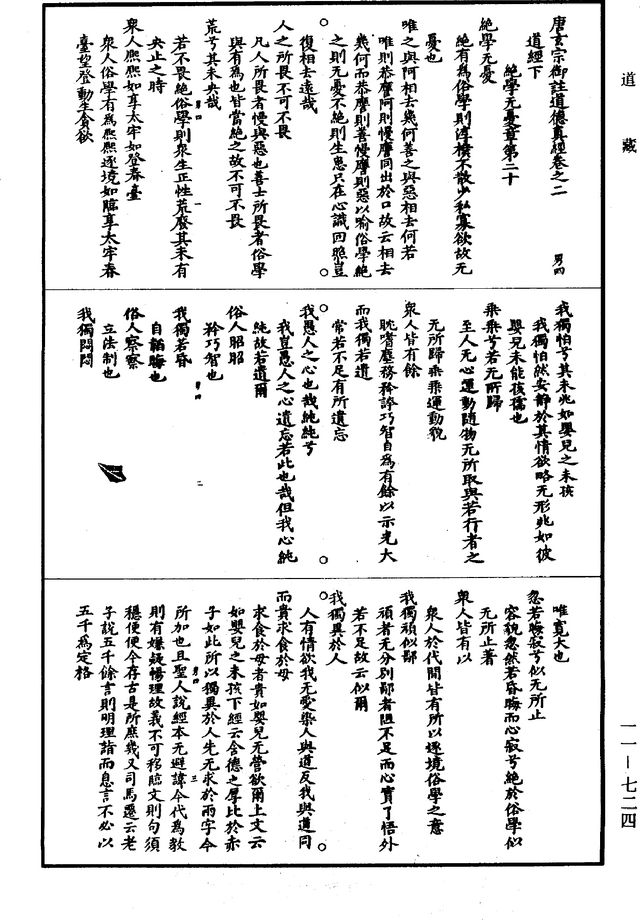 道藏
唐玄宗御註道德真經卷之二 男四
道經下
絕學无憂章第二十
絕學无憂
絕有為俗學則淳樸不散少私寡欲故无
憂也
唯之與阿相去幾何善之與惡相去何若
唯則恭膺阿則慢膺同出於口故云相去
幾何而恭膺則善慢膺則惡以喻俗學絕
之則无憂不絕則生患只在心識回照豈
復相去遠哉
人之所畏不可不畏
凡人所畏者慢與惡也善士所畏者俗學
與有為也皆當絕之故不可不畏
荒兮其未央哉
若不畏絕俗學則衆生正性荒廢其未有
央止之時
衆人熙熙如享太牢如登春臺
衆人俗學有為熙熙逐境如臨享太牢春
臺望登動生貪欲
我獨怕兮其未兆如嬰兒之未孩
我獨怕然安靜於其情欲略无形兆如彼
嬰兒未能孩孺也
乘乘兮若无所歸
至人无心運動隨物无所取與若行者之
无所歸乘乘運動貌
衆人皆有餘
耽嗜塵務矜誇巧智自為有餘以示光大
而我獨若遺
常若不足有所遺忘
我愚人之心也哉純純兮
我豈愚人之心遺忘若此也哉但我心純
純故若遺爾
俗人昭昭
矜巧智也
我獨若昏
自韜晦也
俗人察察
立法制也
我獨悶悶
唯寬大也
忽若晦寂兮似无所止
容貌忽然若昏晦而心寂兮絕於俗學似
无所止著
衆人皆有以
衆人於代間皆有所以逐境俗學之意
我獨頑似鄙
頑者无分別鄙者陋不足而心實了悟外
若不足故云似爾
我獨異於人
人有情欲我无愛染人與道反我與道同
而貴求食於母
求食於母者貴如嬰兒无營欲爾上文云
如嬰兒之未孩下經云含德之厚比於赤
子如此所以獨異於人先无求於兩字今
所加也且聖人說經本无避諱今代為教
則有嫌疑暢理故義不可移臨文則句須
穩便便今存古是所庶幾又司馬遷云老
子說五千餘言則明理詣而息言不必以
五千為定格
一一—七二四